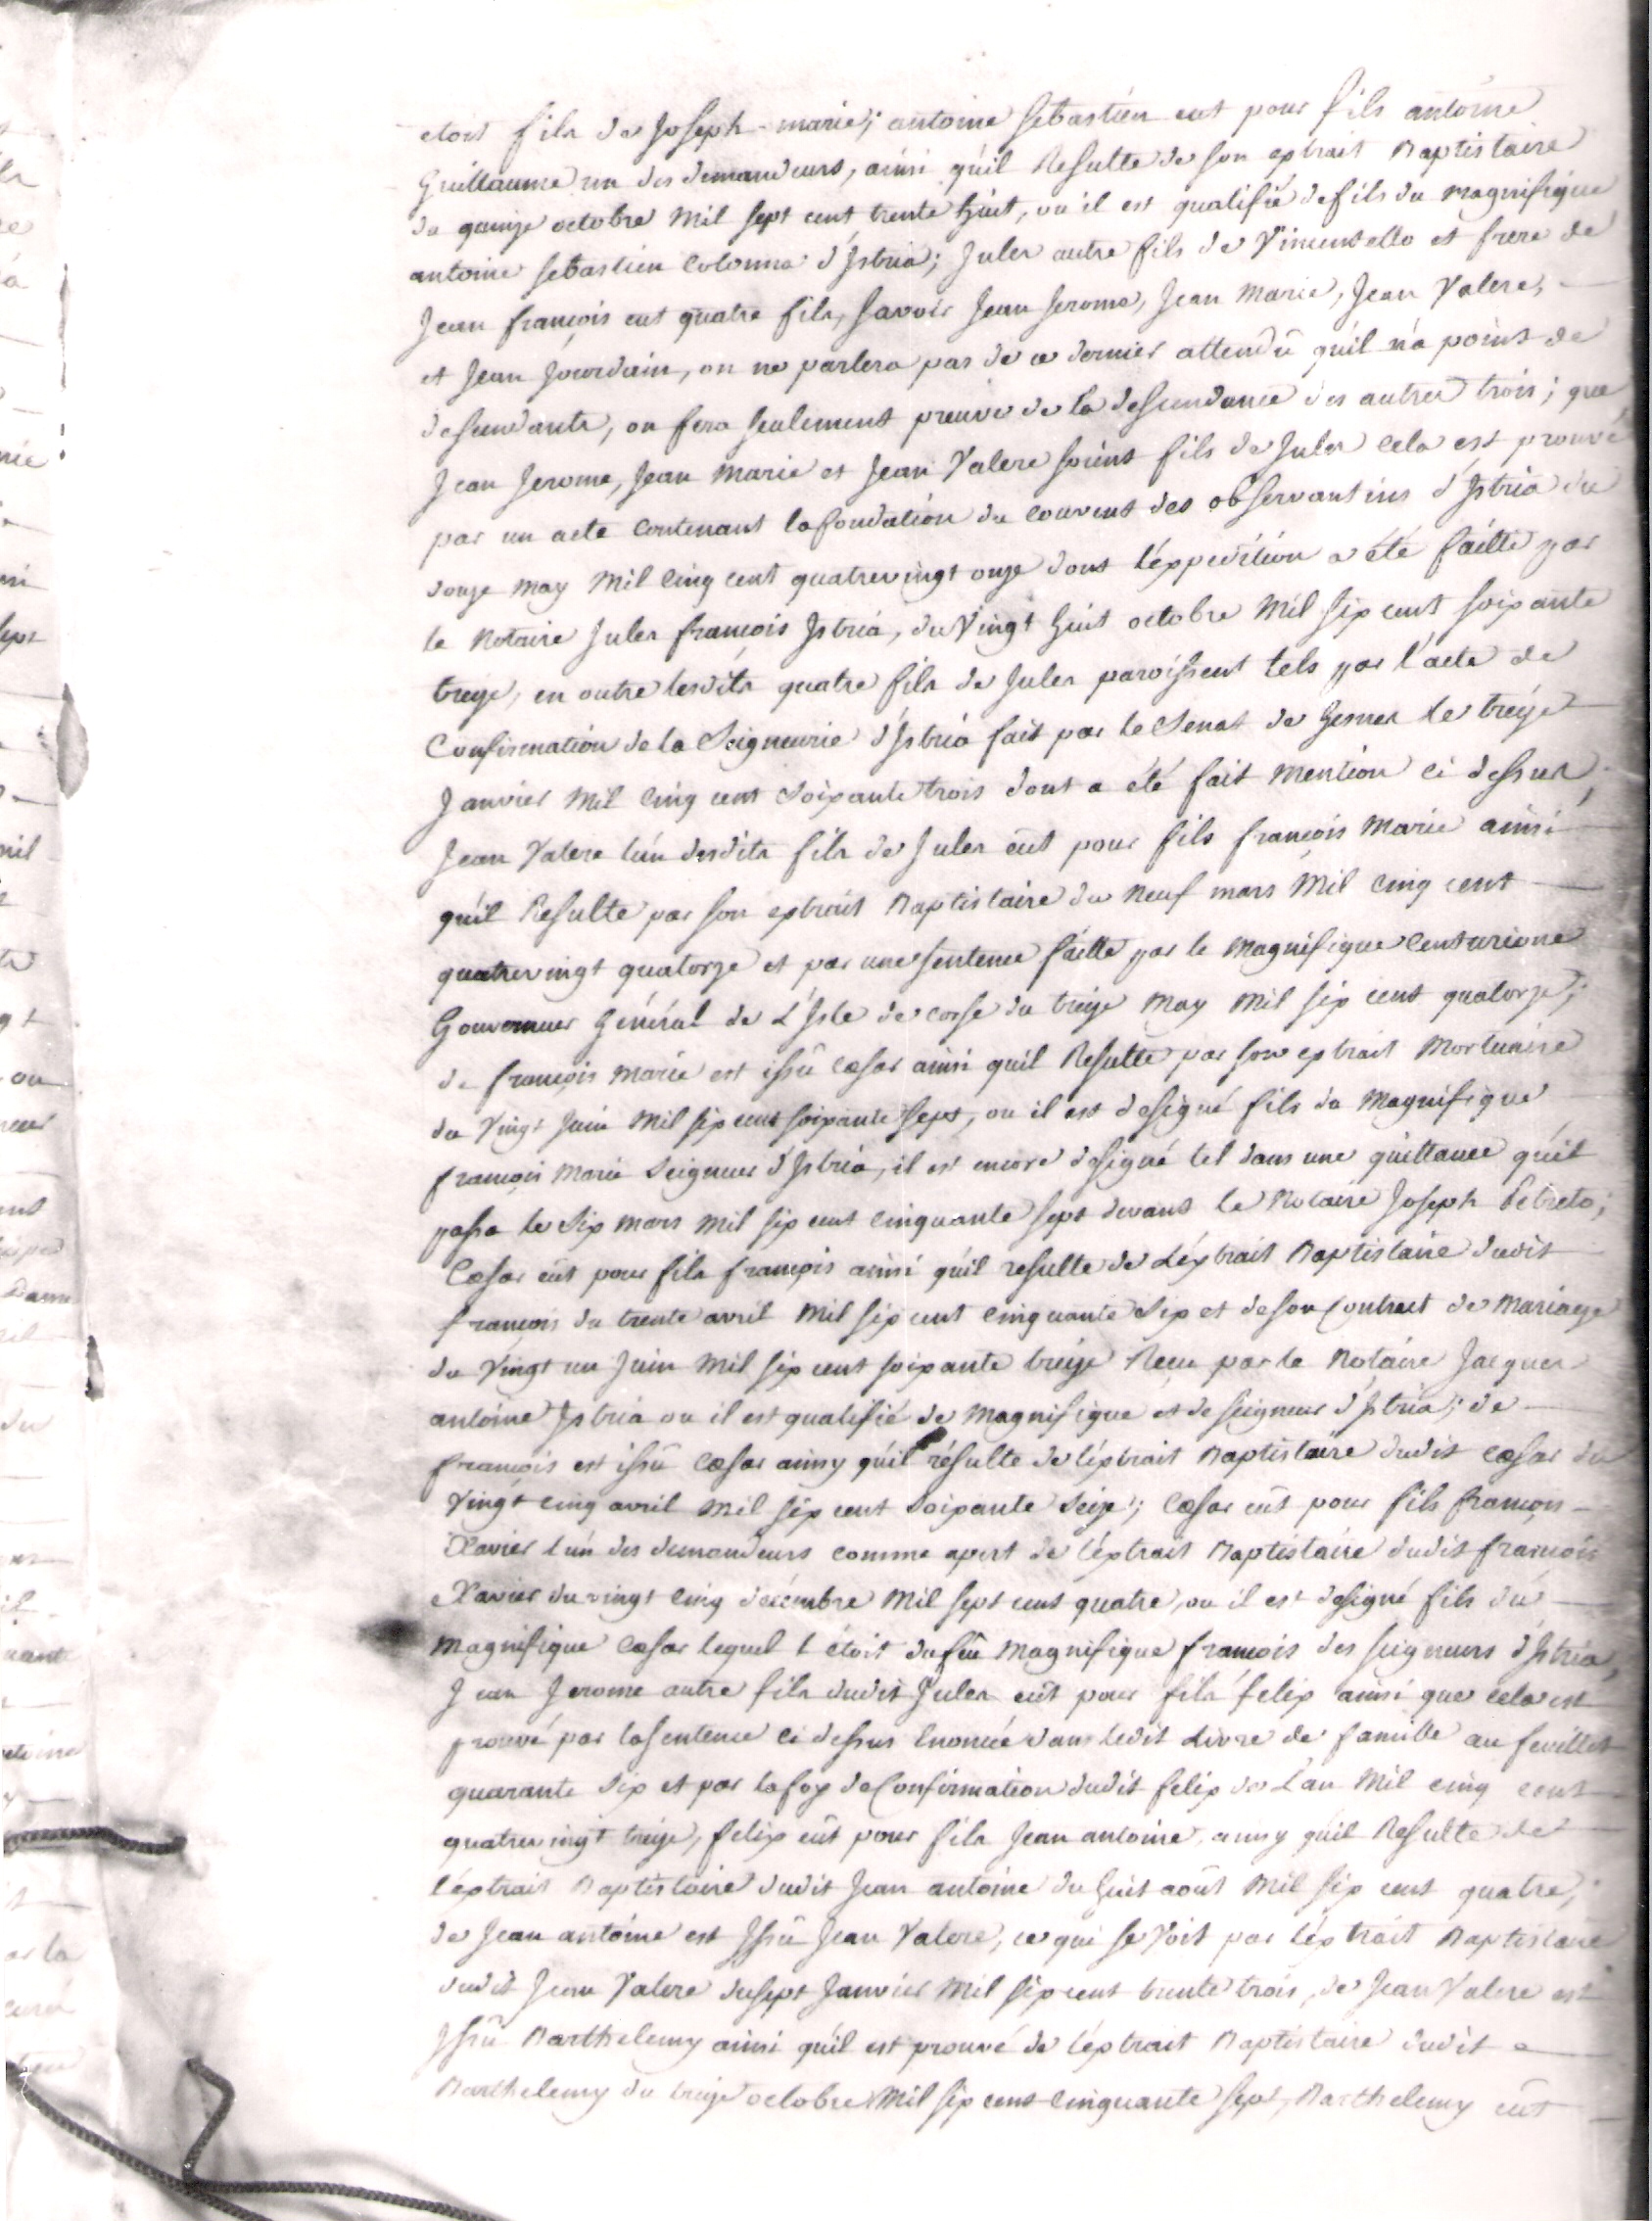 etoit fils de Joseph-marie; antoine Sebastien eut pour fils antoine
Guillaume un des demandeurs, ainsi qu'il Resulte de son extrait Baptistaire
du quinze octobre mil sept cent trente huit, ou il est qualifié de fils du magnifique
antoine Sebastien Colonna d'Istria; Jules autre fils de Vincentello et frere de
Jean françois eut quatre fils, savoir Jean Jerome, Jean Marie, Jean Valere,
et Jean Jourdain, on ne parlera pas de ce dernier attendû qu'il n'a point de
descendants, on fera seulement preuve de la descendance des autres trois; que
Jean Jerome, Jean Marie et Jean Valere soient fils de Jules cela est prouvé
par un acte contenant la fondation du couvent des observantins d'Istria du
douze May Mil Cinq cent quatrevingt onze dont l'expedition a été faitte par
le Notaire Jules françois Istria, du Vingt huit octobre Mil six cent soixante
treize, en outre lesdits quatre fils de Jules paroissent tels par l'acte de
Confirmation de la Seigneurie d'Istria fait par le Senat de Genes le treize
Janvier Mil Cinq cent soixante trois dont a été fait Mention ci dessus,
Jean Valere l'un desdits fils de Jules eût pour fils françois Marie ainsi
qu'il Resulte par son extrait Baptistaire du Neuf mars Mil cinq cent
quatrevingt quatorze et par une sentence faitte par le Magnifique Centurione
Gouverneur Général de L'Isle de corse du treize May Mil six cent quatorze;
de françois marie est issû Cæsar ainsi quil Resulte par son extrait Mortuaire
du Vingt Juin Mil six cent soixante sept, ou il est designé fils du Magnifique
françois Marie Seigneur d'Istria, il est encore designé tel dans une quittance qu'il
passa le Six mars mil six cent cinquante sept devant le Notaire Joseph Petreto;
Cæsar eût pour fils françois ainsi qu'il resulte de L'éxtrait Baptistaire dudit
françois du trente avril Mil six cent cinquante Six et de son Contract de Mariage
du Vingt un Juin Mil six cent soixante treize Recu par le Notaire Jacques
antoine Istria ou il est qualifié de Magnifique et de seigneur d'Istria; de
françois est issû Cæsar ainsy qu'il résulte de l'éxtrait Baptistaire dudit Cæsar du
Vingt cinq avril Mil six cent Soixante Seize; Cæsar eût pour fils françois
Xavier l'un des demandeurs comme apert de l'éxtrait Baptistaire dudit françois
Xavier du vingt cinq décembre Mil sept cent quatre, ou il est designé fils du
Magnifique Cæsar lequel l'étoit du feu Magnifique françois des seigneurs d'Istria,
Jean Jerome autre fils dudit Jules eût pour fils felix ainsi que cela est
prouvé par la sentence ci dessus Enoncée dans ledit Livre de famille au feuillet
quarante Six et par la foy de Confirmation dudit felix de L'an Mil cinq cent
quatrevingt treize, felix eût pour fils Jean antoine, ainsy quil Resulte de
l'éxtrait Baptistaire dudit Jean antoine du huit août Mil six cent quatre;
de Jean antoine est Issû Jean Valere, ce qui se Voit par l'éxtrait Baptistaire
dudit Jean Valere du sept Janvier Mil six cent trente trois, de Jean Valere est
Issû Barthelemy ainsi qu'il est prouvé de l'éxtrait Baptistaire dudit
Barthelemy du treize octobre Mil six cens cinquante sept, Barthelemy eût